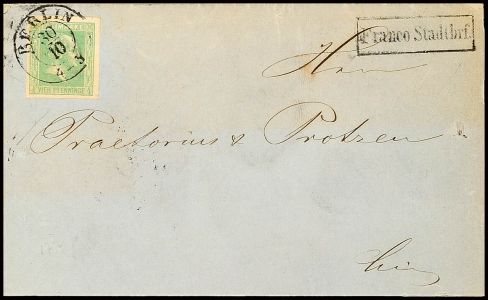 BERLIN
30
10
4-5
VIER PFENNINGE
Franco Stadtbrf.
Herrn
Praetorius & Protzen
hier